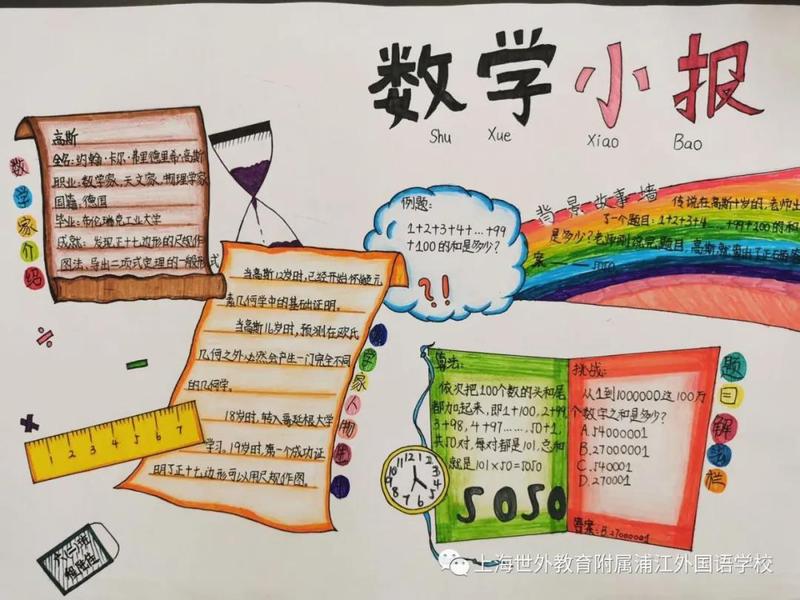 数学小报
Shu Xue Xiao Bao
数学家介绍
高斯
全名:约翰·卡尔·弗里德里希·高斯
职业:数学家,天文家,物理学家
国籍:德国
毕业:布伦瑞克工业大学
成就:发现正十七边形的尺规作
图法、导出二项式定理的一般形式
例题:
1+2+3+4+…+99
+100的和是多少?
?!
背景故事墙
传说在高斯十岁时,老师出
了一个题目:1+2+3+4……+99+100的和
是多少?老师刚读完题目,高斯就
案
当高斯12岁时,已经开始怀疑元
素几何学中的基础证明。
当高斯16岁时,预测在欧氏
几何之外必然会产生一门完全不同
的几何学。
18岁时,转入哥廷根大学
学习。19岁时,第一个成功证
明了正十七边形可以用尺规作图。
学家人物
1 2 3 4 5 6 7
算法:
依次把100个数的头和尾
都加起来,即1+100,2+99,
3+98,4+97……,50+51,
共50对,每对都是101,总和
就是101×50=5050
5050
挑战:
从1到1000000这100万
个数字之和是多少?
A.54000001
B.27000001
C.540001
D.270001
答案:B.27000001
题目解法栏
12 1 2 3 4 5 6 7 8 9 10 11
上海世外教育附属浦江外国语学校